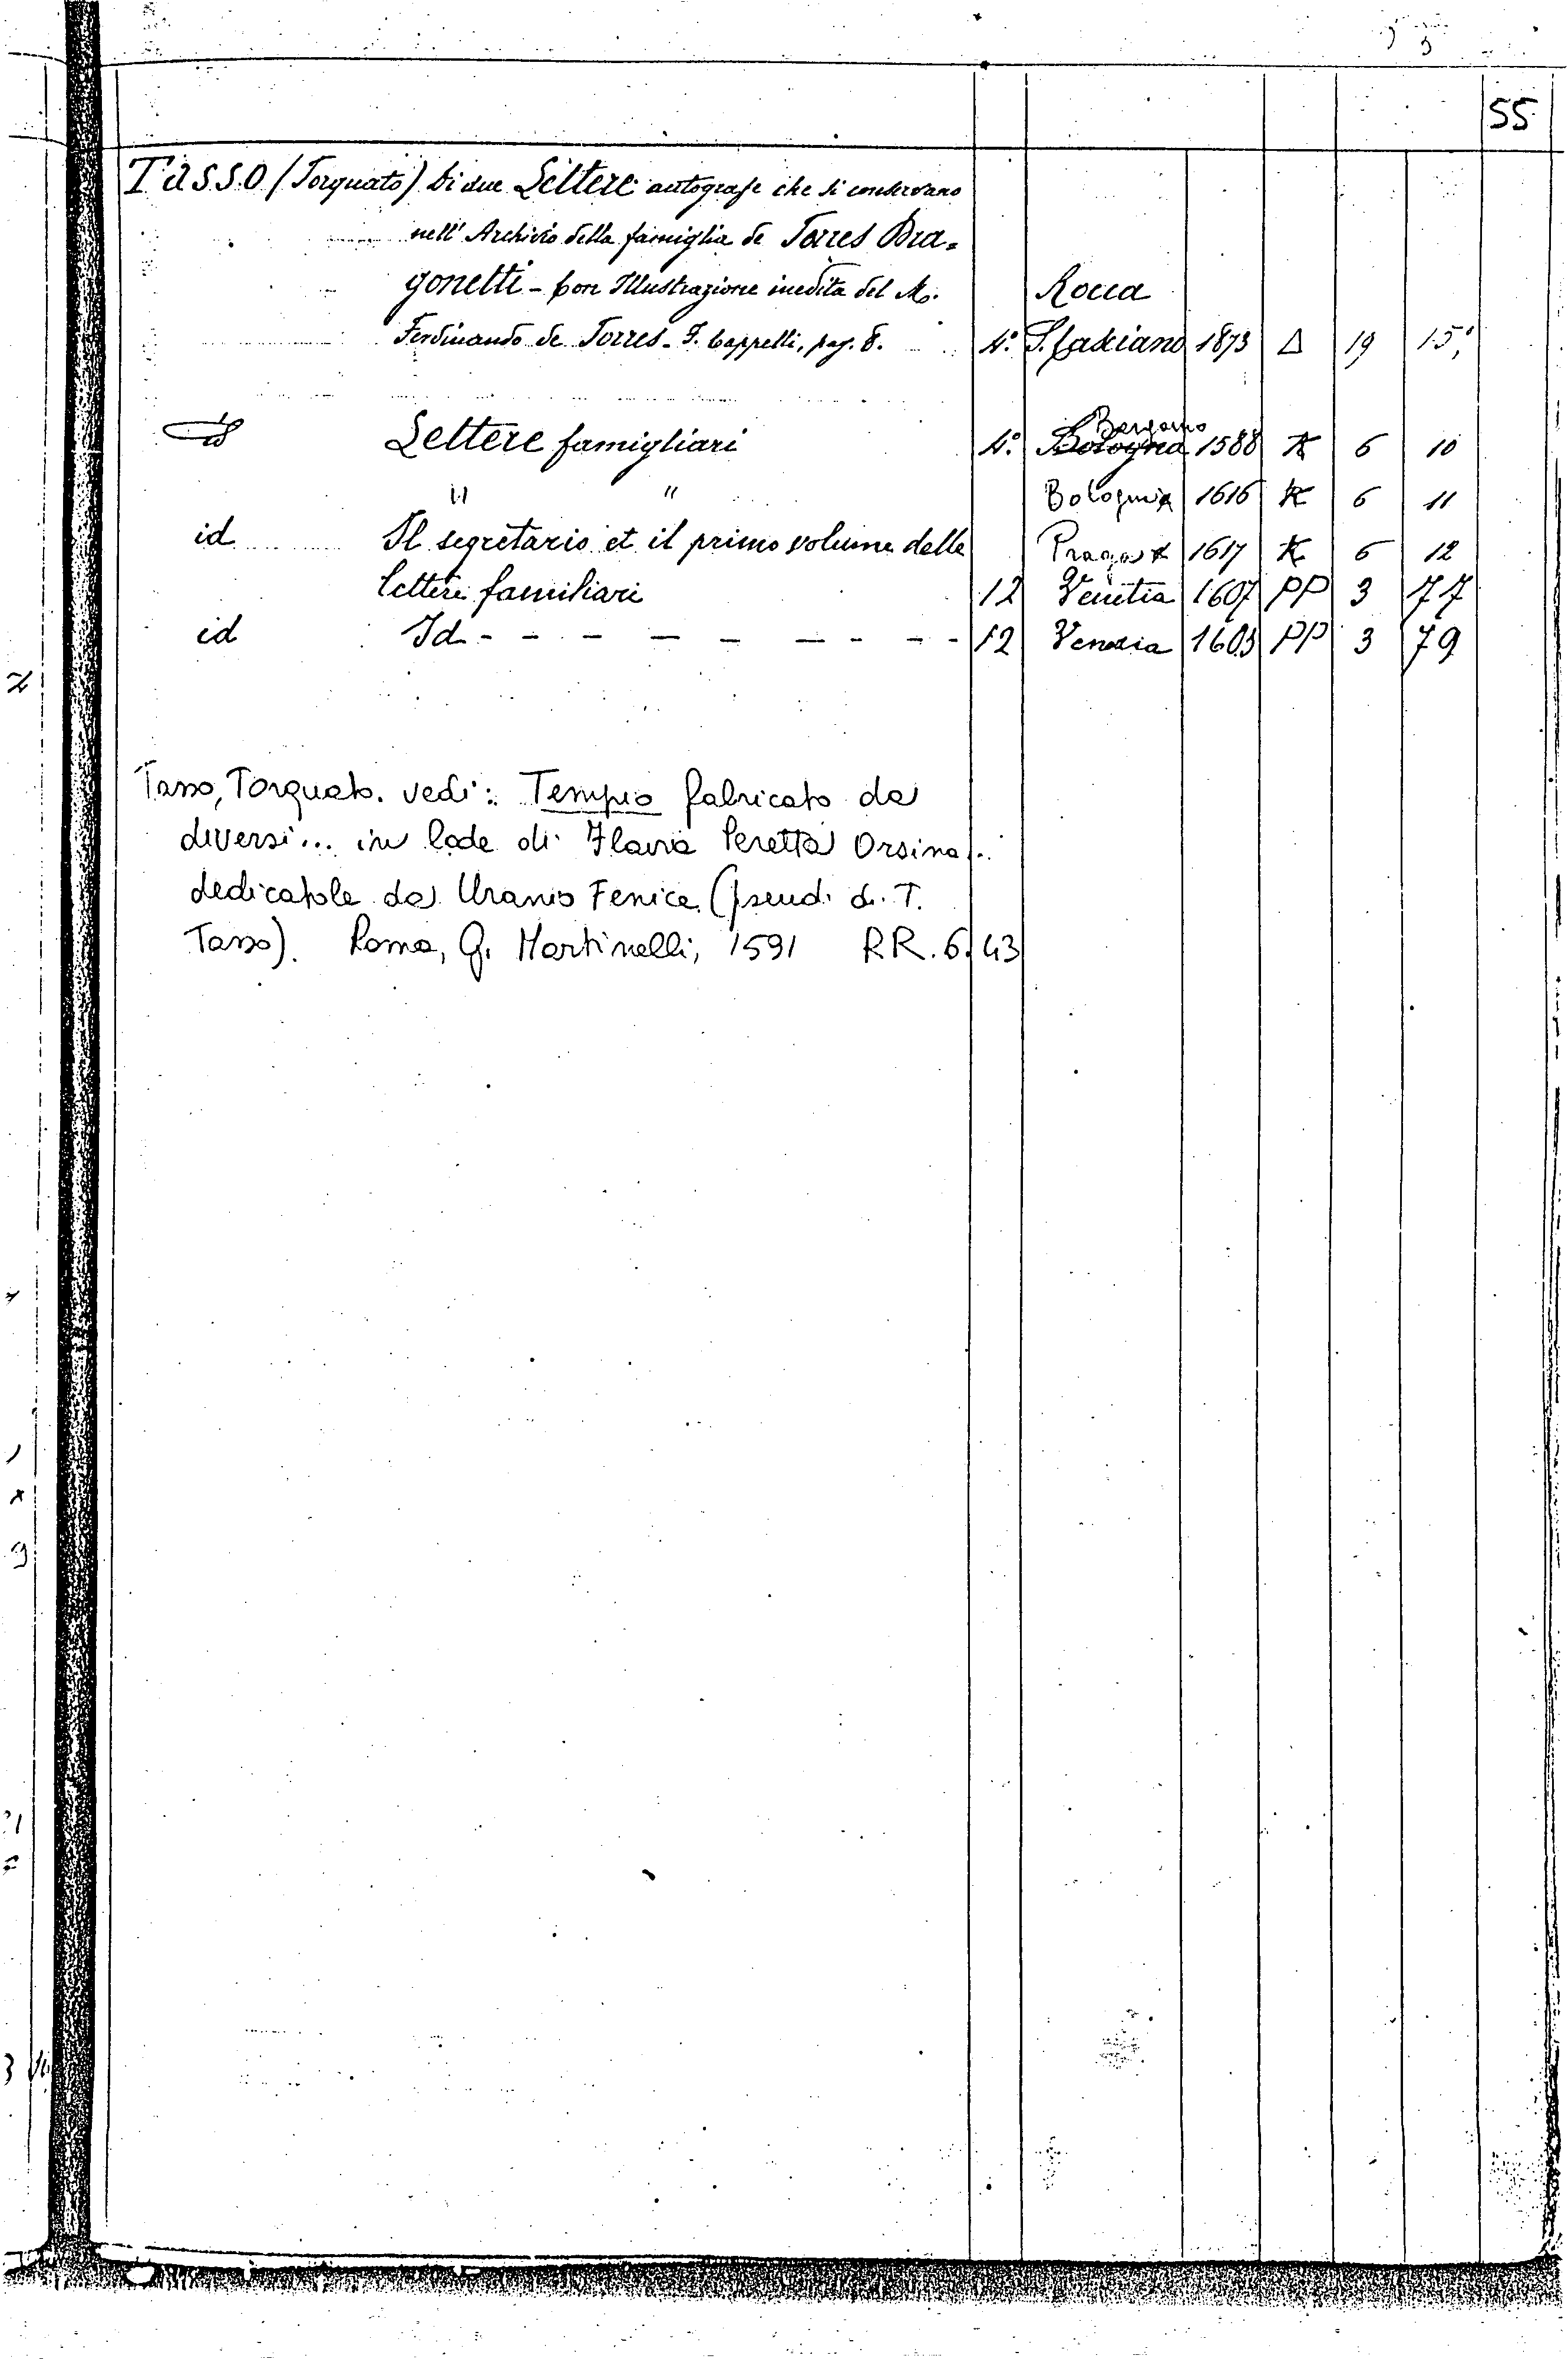 55
TASSO (Torquato) Di due Lettere autografe che si conservano
nell' Archivio della famiglia de Torres Dra=
gonetti - Con Illustrazione inedita del M. Rocca
Ferdinando de Torres - F. Cappelli, pag. 8. 4.° S. Casciano 1873 Δ 19 15
Lettere famigliari 4.° Bologna Bergamo 1588 K 6 10
" " Bologna 1616 K 6 11
id Il segretario et il primo volume delle Praga 1617 K 6 12
lettere familiari 12 Venetia 1607 PP 3 77
id Id - - - - - - - - - 12 Venezia 1603 PP 3 79
Tasso, Torquato. vedi: Tempio fabricato da
diversi... in lode di Flavia Peretta Orsina...
dedicatole da Uranio Fenice (pseud. di T.
Tasso). Roma, G. Martinelli, 1591 RR. 6. 43